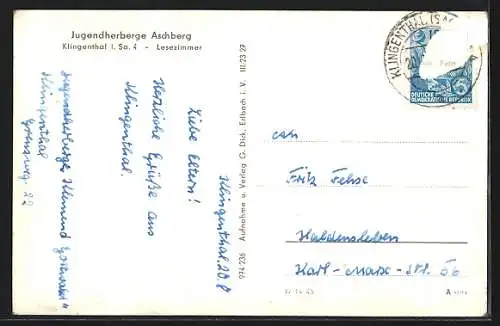 Jugendherberge Aschberg
Klingenthal i. Sa. 4 - Lesezimmer
Klingenthal. 20.8
Liebe Eltern!
Herzliche Grüße aus
Klingenthal.
Jugendherberge "Klement Gottwald"
Klingenthal
Grenzweg 22
Aufnahme u. Verlag G. Dick, Erlbach i. V. III/23/29
KLINGENTHAL (SA
DEUTSCHE
DEMOKRATISCHE REPUBLIK
an
Fritz Fehse
Haldensleben
Karl-Marx-Str. 56
A